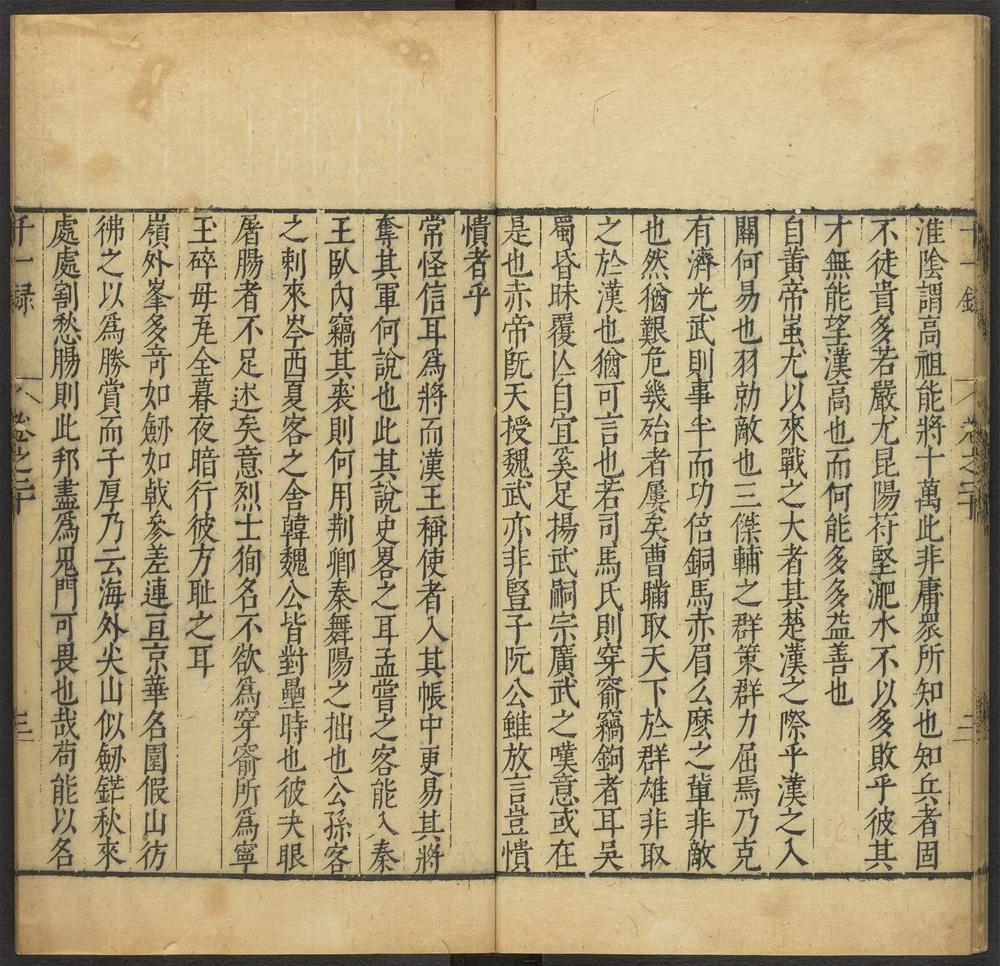 淮陰謂高祖能將十萬此非庸衆所知也知兵者固
不徒貴多若嚴尤昆陽苻堅淝水不以多敗乎彼其
才無能望漢高也而何能多多益善也
自黃帝蚩尤以來戰之大者其楚漢之際乎漢之入
關何易也羽勍敵也三傑輔之群策群力屈焉乃克
有濟光武則事半而功倍銅馬赤眉么麼之輩非敵
也然猶艱危幾殆者屢矣曹瞞取天下於群雄非取
之於漢也猶可言也若司馬氏則穿窬竊鉤者耳吳
蜀昏昧覆亾自宜奚足揚武嗣宗廣武之嘆意或在
是也赤帝旣天授魏武亦非豎子阮公雖放言豈憒
憒者乎
常怪信耳爲將而漢王稱使者入其帳中更易其將
奪其軍何說也此其說史畧之耳孟嘗之客能入秦
王臥內竊其裘則何用荆卿秦舞陽之拙也公孫客
之刺來岑西夏客之舍韓魏公皆對壘時也彼夬眼
屠腸者不足述矣意烈士狥名不欲爲穿窬所爲寧
玉碎毋瓦全暮夜暗行彼方耻之耳
嶺外峯多竒如劒如戟參差連亘京華名園假山彷
彿之以爲勝賞而子厚乃云海外尖山似劒鋩秋來
處處割愁腸則此邦盡爲鬼門可畏也哉苟能以名
卷之二十
三